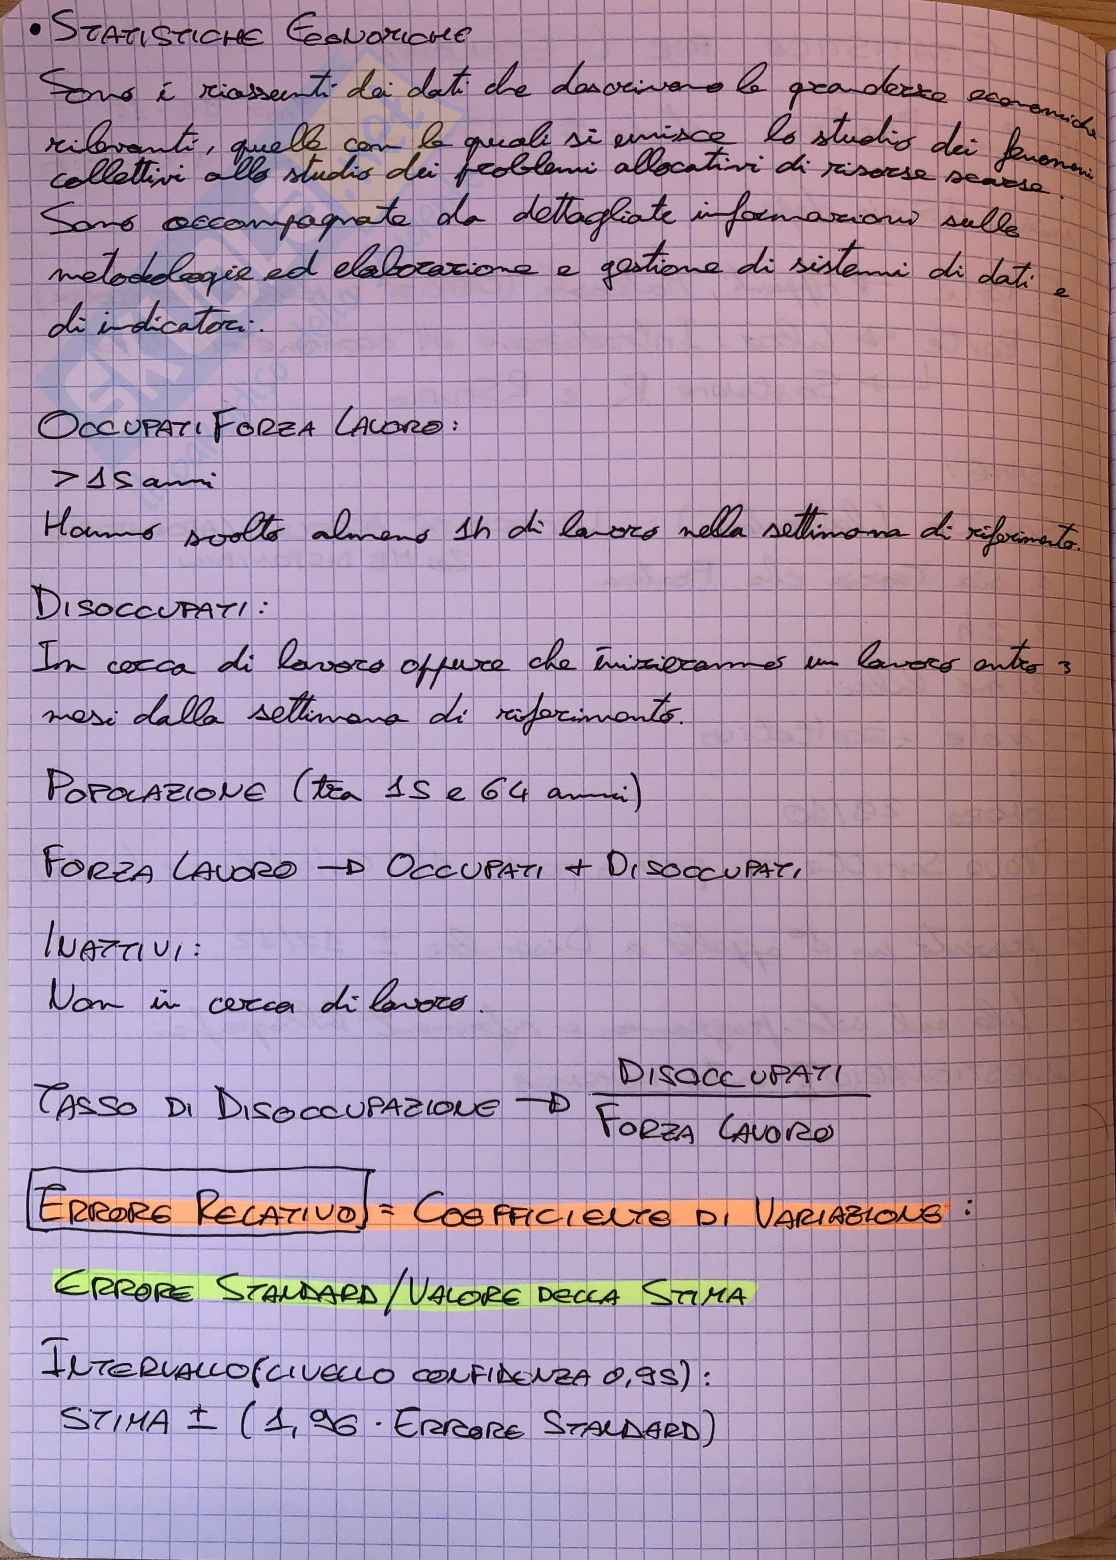 • STATISTICHE ECONOMICHE
Sono i riassunti dei dati che descrivono le grandezze economiche
rilevanti, quelle con le quali si unisce lo studio dei fenomeni
collettivi allo studio dei problemi allocativi di risorse scarse.
Sono accompagnate da dettagliate informazioni sulle
metodologie ed elaborazione e gestione di sistemi di dati e
di indicatori.
OCCUPATI FORZA LAVORO:
> 15 anni
Hanno svolto almeno 1h di lavoro nella settimana di riferimento.
DISOCCUPATI:
In cerca di lavoro oppure che inizieranno un lavoro entro 3
mesi dalla settimana di riferimento.
POPOLAZIONE (tra 15 e 64 anni)
FORZA LAVORO → OCCUPATI + DISOCCUPATI
INATTIVI:
Non in cerca di lavoro.
TASSO DI DISOCCUPAZIONE → DISOCCUPATI / FORZA LAVORO
ERRORE RELATIVO = COEFFICIENTE DI VARIAZIONE:
ERRORE STANDARD/VALORE DELLA STIMA
INTERVALLO (LIVELLO CONFIDENZA 0,95):
STIMA ± (1,96 · ERRORE STANDARD)